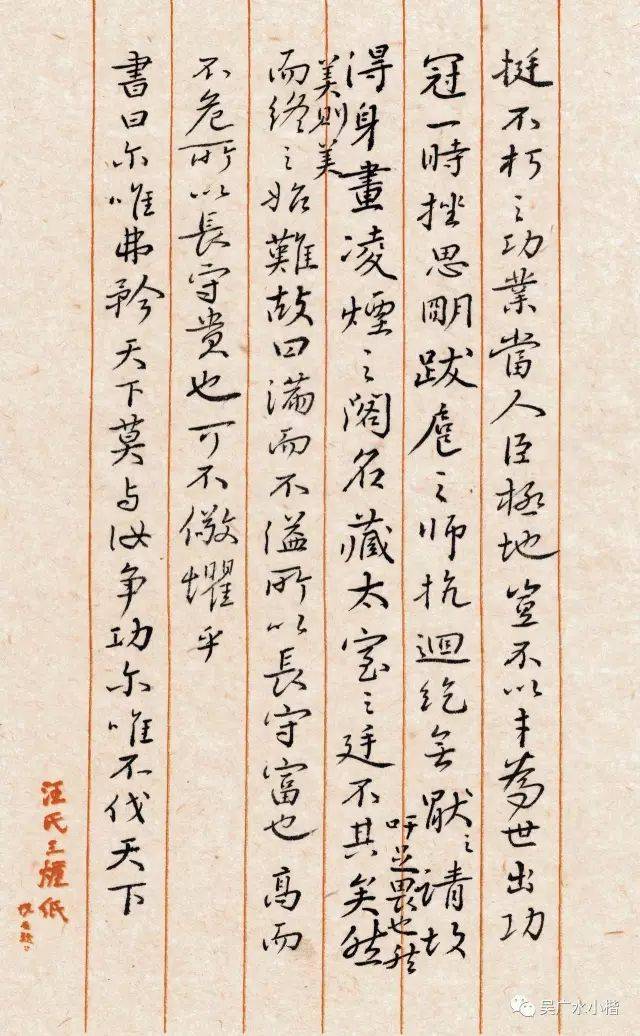 挺不朽之功業當人臣極地豈不以才為世出功
冠一時挫思明跋扈之師抗迴紇無厭之請故
得身畫凌煙之閣名藏太室之廷不其美然
美則美
吁足畏也然
而終之始難故曰滿而不溢所以長守富也高而
不危所以長守貴也可不儆懼乎
書曰尔唯弗矜天下莫与汝争功尔唯不伐天下
汪氏玉
紙
吴广水小楷